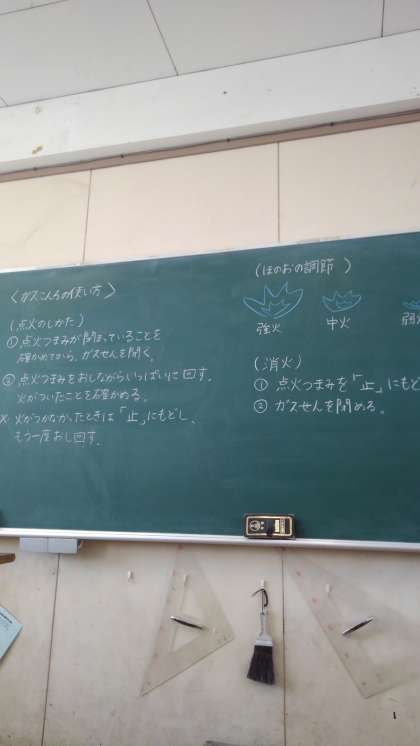 〈ガスこんろの使い方〉
(点火のしかた)
① 点火つまみが閉まっていることを
確かめてから、ガスせんを開く。
② 点火つまみをおしながらいっぱいに回す。
火がついたことを確かめる。
× 火がつかなかったときは「止」にもどし、
もう一度おし回す。
(ほのおの調節)
強火 中火 弱火
(消火)
① 点火つまみを「止」にもど
② ガスせんを閉める。